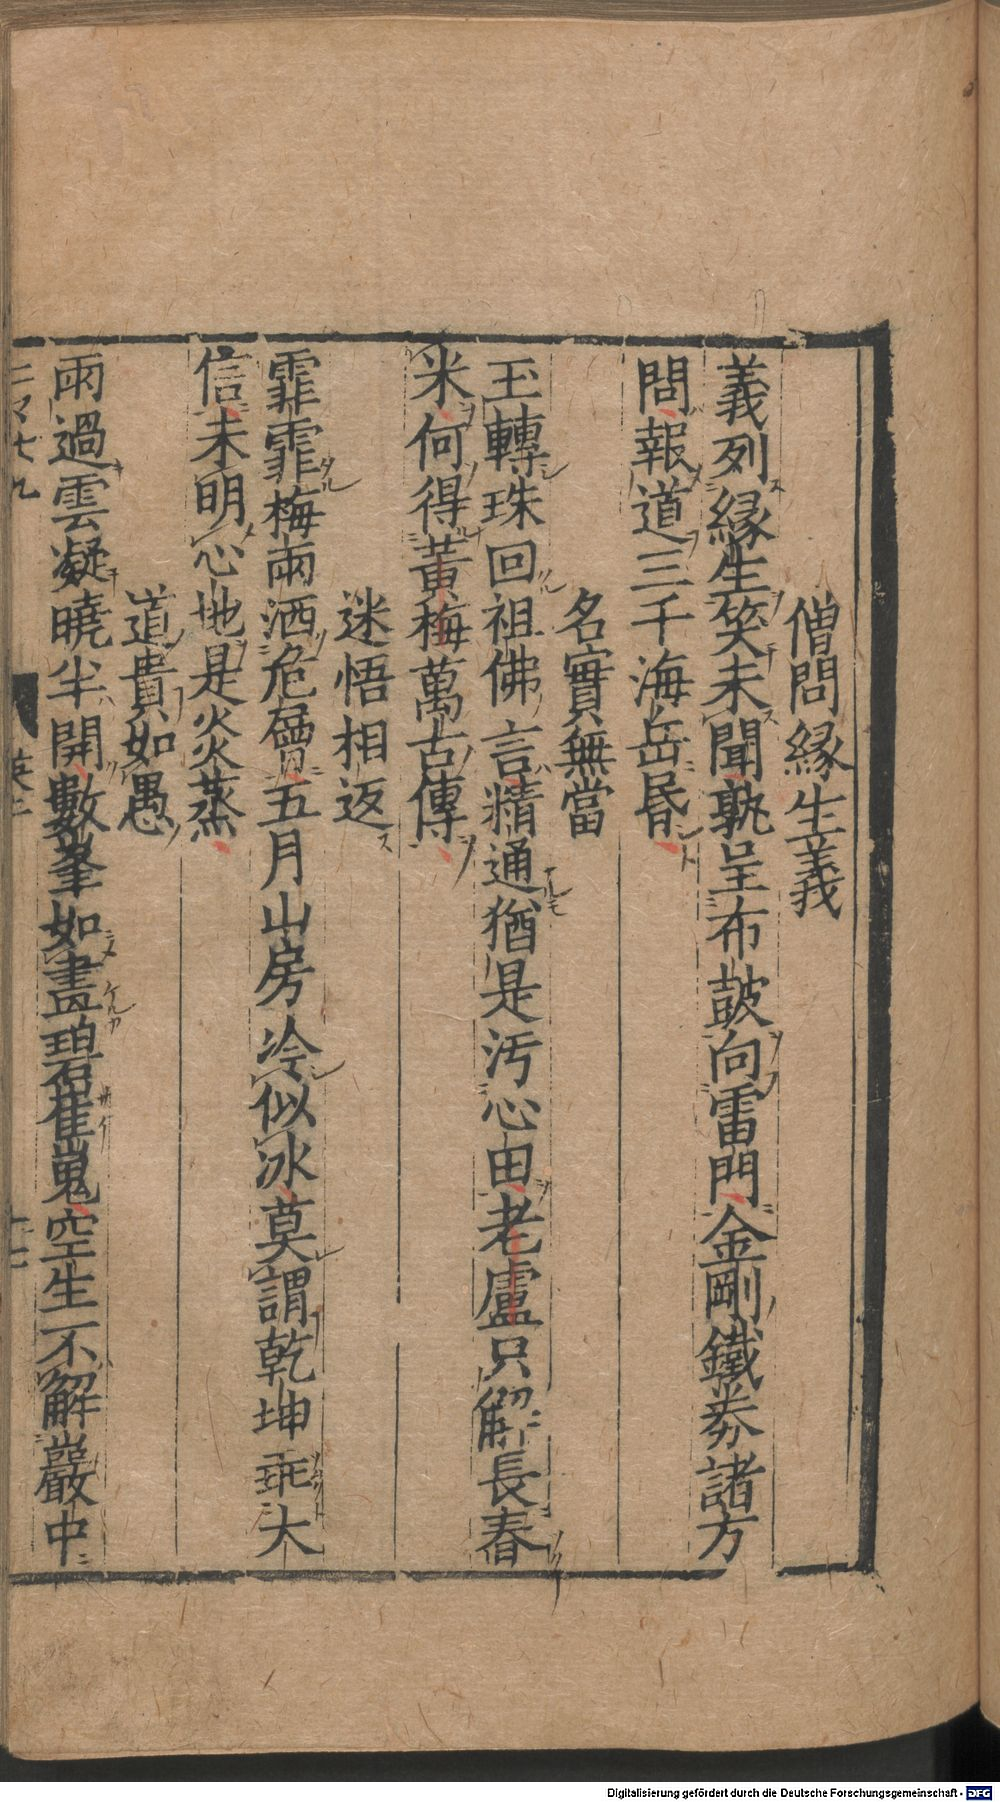 僧問緣生義
義列緣生笑未聞孰呈布鼓向雷門金剛鐵券諸方
問報道三千海岳昏
名實無當
玉轉珠回祖佛言精通猶是汚心田老盧只解長舂
米何得黃梅萬古傳
迷悟相返
霏霏梅雨洒危層五月山房冷似冰莫謂乾坤乖大
信未明心地是炎蒸
道貴如愚
雨過雲凝曉半開數峯如畫碧崔嵬空生不解巖中
Digitalisierung gefördert durch die Deutsche Forschungsgemeinschaft - DFG